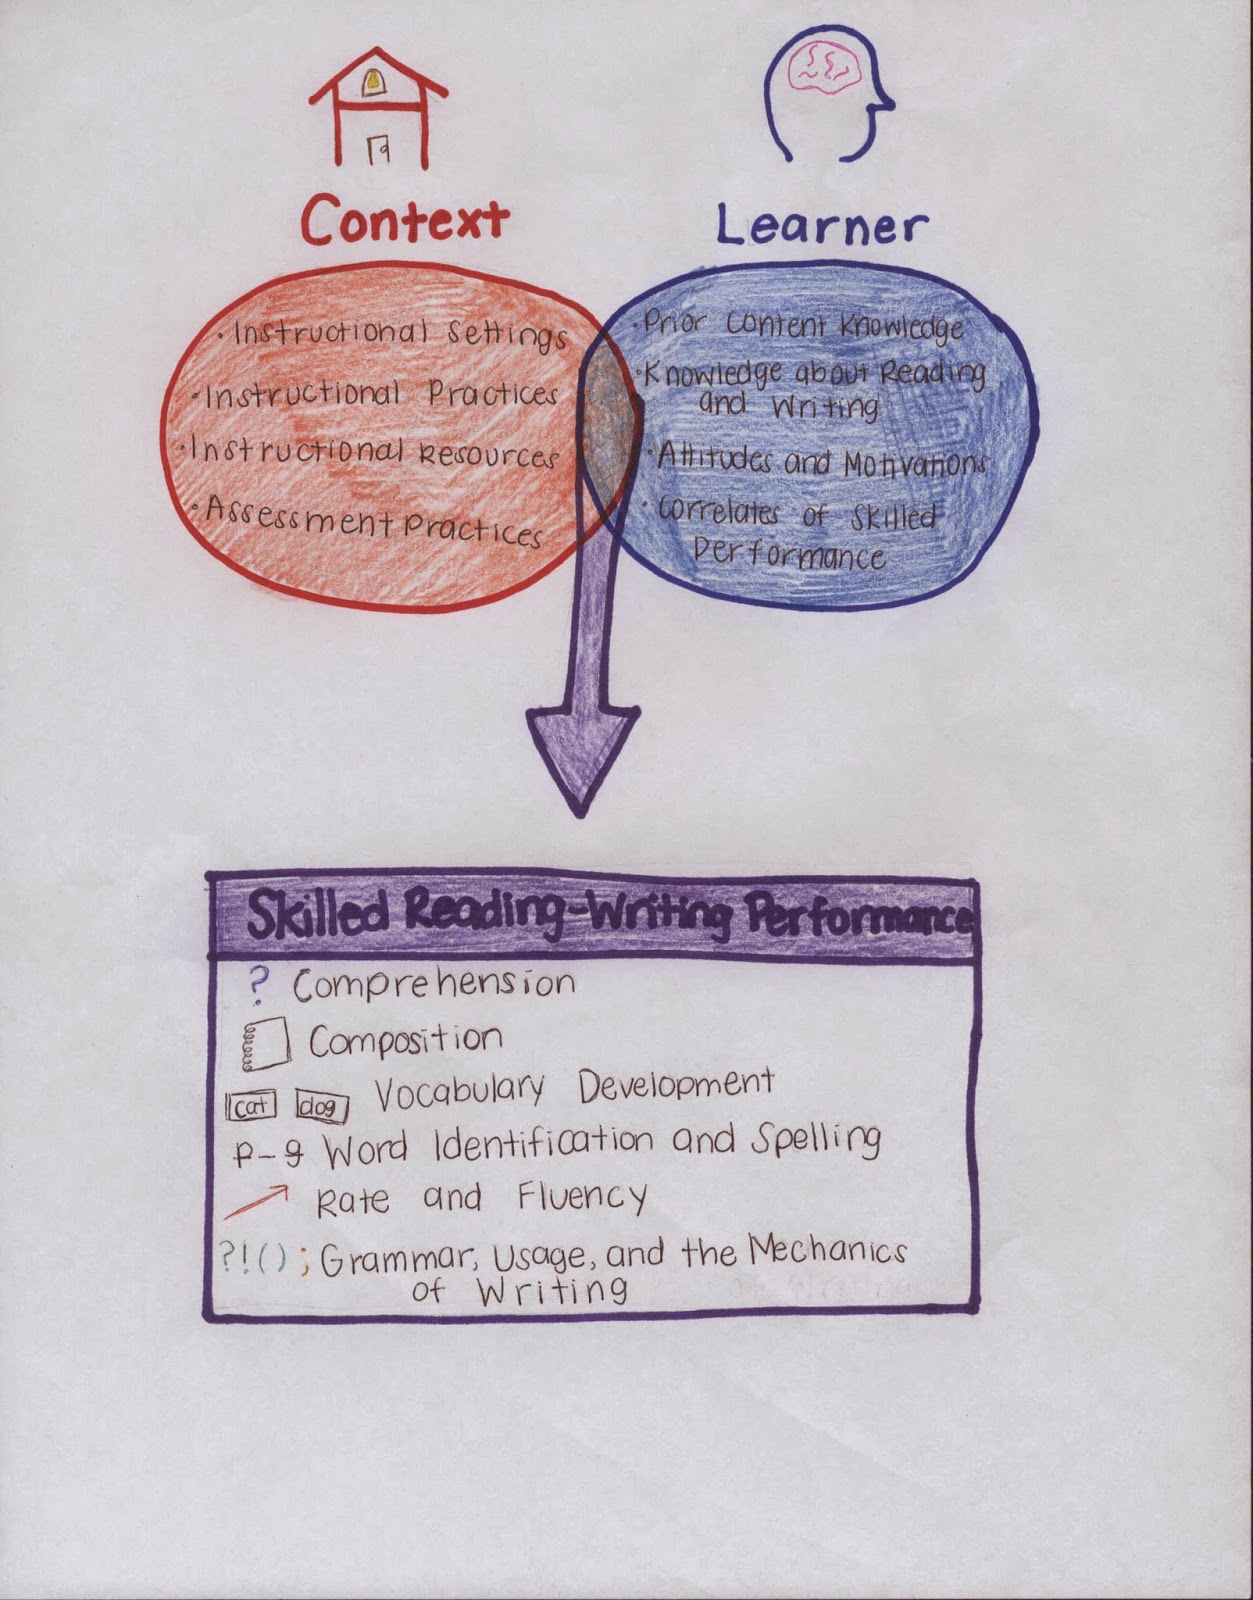 Context
Learner
· Instructional Settings
· Instructional Practices
· Instructional Resources
· Assessment Practices
· Prior Content Knowledge
· Knowledge about Reading
and Writing
· Attitudes and Motivations
· Correlates of Skilled
Performance
Skilled Reading-Writing Performance
? Comprehension
Composition
cat dog Vocabulary Development
p-g Word Identification and Spelling
Rate and Fluency
?!(); Grammar, Usage, and the Mechanics
of Writing